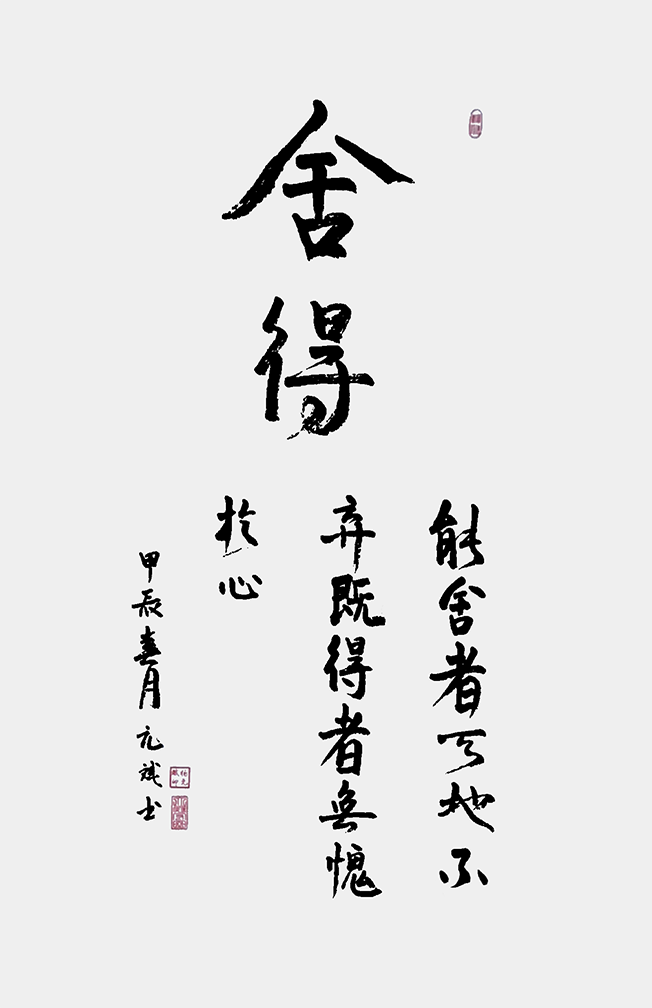 舍得
能舍者天地不
弃既得者無愧
於心
甲辰月元斌书